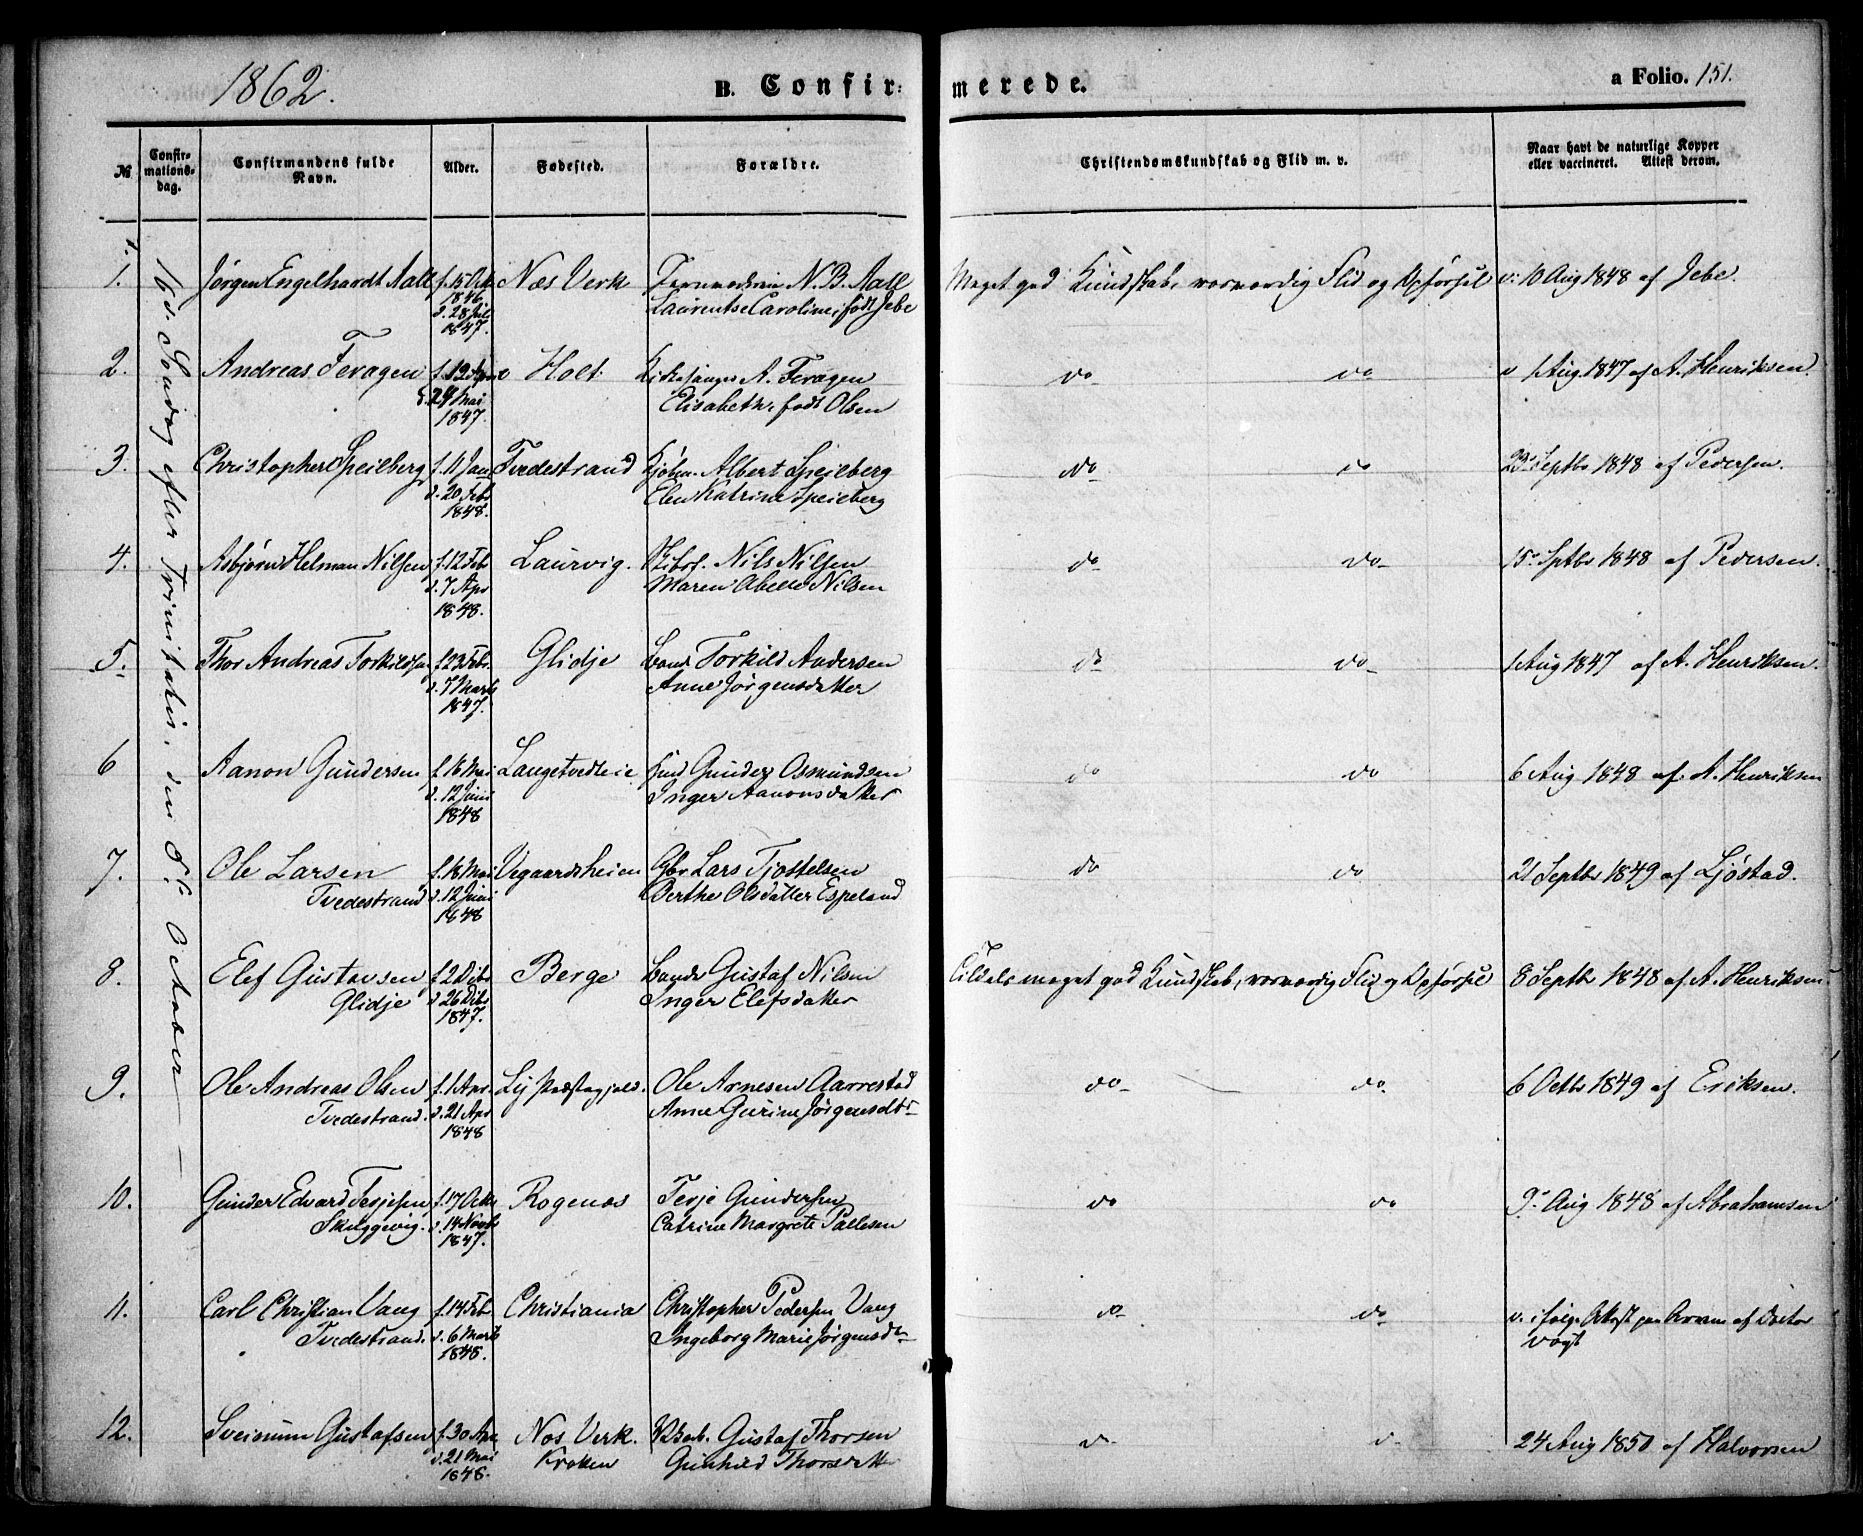 1862.
B. Confirmerede.
a Folio. 151.
№
Confirmationsdag.
Confirmandens fulde Navn.
Alder.
Fødested.
Forældre.
Christendomskundskab og Flid m. v.
Naar havt de naturlige Kopper eller vaccineret. Attest derom.
16 S. Søndag efter Trinitatis, den 5. October
1. Jørgen Engelhardt Aall f. 15 Okt Næs Verk N. B. Aall Meget god Kundskab, Flid og Opførsel v. 10 Aug 1848 af Jebe.
1846. d. 28 Jul 1847. Laurentse Caroline, født Jebe
2. Andreas Feragen f. 12 Holt Kirkesanger A. Feragen do do v 1 Aug. 1847 af A. Henriksen.
24 Mai 1847. Elisabeth, født Olsen
3. Christopher Speilberg f. 11 Jan Tvedestrand Kjøbm. Albert Speilberg do do 23 Septbr 1848 af Pedersen.
d. 20 Feb 1848. Elen Katrine Speilberg
4. Asbjørn Helman Nilsen f. 12 Feb Laurvig. Nils Nilsen do do 15 Septbr 1848 af Pedersen.
d. 7 Apr 1848. Maren Abelle Nilsen
5. Thor Andreas Torkildsen f. 23 Febr. Glidje Torkild Andersen do do 1 Aug 1847 af A. Henriksen.
d. 7 Marts 1847. Anne Jørgensdatter
6 Aanon Gundersen f. 16 Mai Langetvedteie Gunder Osmundsen do do 6 Aug 1848 af A. Henriksen
d. 12 Juni 1848 Inger Aanonsdatter
7. Ole Larsen f. 16 Mai Vegaardsheien Gbr Lars Tjostelsen do do 21 Septbr 1849 af Ljøstad.
Tvedestrand d. 12 Juni 1848 Berthe Olsdatter Espeland
8. Elef Gustavsen f. 2 Dcbr Berge Gustaf Nilsen Tildels meget god Kundskab, Flid og Opførsel 8 Septbr 1848 af A. Henriksen
Glidje d. 26 Dcbr 1847. Inger Elefsdatter
9. Ole Andreas Olsen f. 1 Apr. Ly Præstegjeld. Ole Arnesen Aarrestad do do 6 Octbr 1849 af Eriksen.
Tvedestrand. d. 21 Apr 1848 Anne Gurine Jørgensdtr
10. Gunder Edvard Terjesen f. 17 Oktr Rogenæs Terje Gundersen do do 9 Aug 1848 af Abrahamsen
d. 14 Novb 1847. Catrine Margrete Pallesen
11. Carl Christian Vang f. 14 Feb Christiania Christopher Pedersen Vang do do v. ifølge Attest af Doctor Vogt
Tvedestrand. d. 6 Marts 1848. Ingeborg Marie Jørgensdr
12. Sveinum Gustafsen f. 30 Apr Næs Verk. Gustaf Thorsen do do 24 Aug 1850 af Halvorsen
d. 21 Mai 1848. Kroken Gunhild Thorsdatter